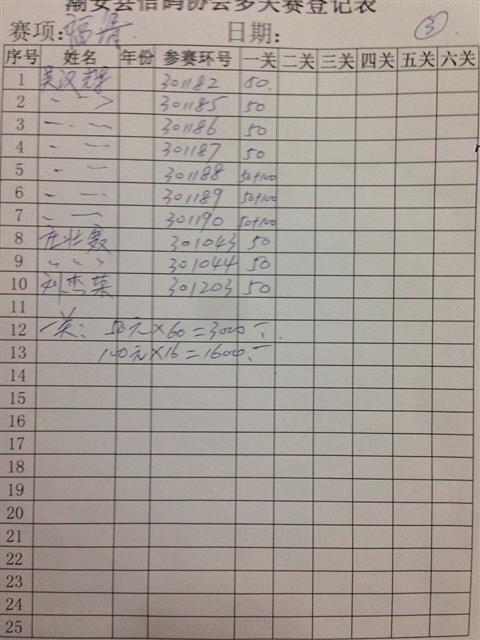 潮安县信鸽协会多关赛登记表
赛项:福清 日期: ③
序号 姓名 年份 参赛环号 一关 二关 三关 四关 五关 六关
1 吴汉辉 301182 50.
2 〃 〃 301185 50
3 〃 〃 301186 50
4 〃 〃 301187 50
5 〃 〃 301188 50+100
6 〃 〃 301189 50+100
7 〃 〃 301190 50+100
8 301043 50
9 〃 〃 〃 301044 50
10 301203 50
11
12 一关: 50元×60=3000
13 100元×16=1600
14
15
16
17
18
19
20
21
22
23
24
25